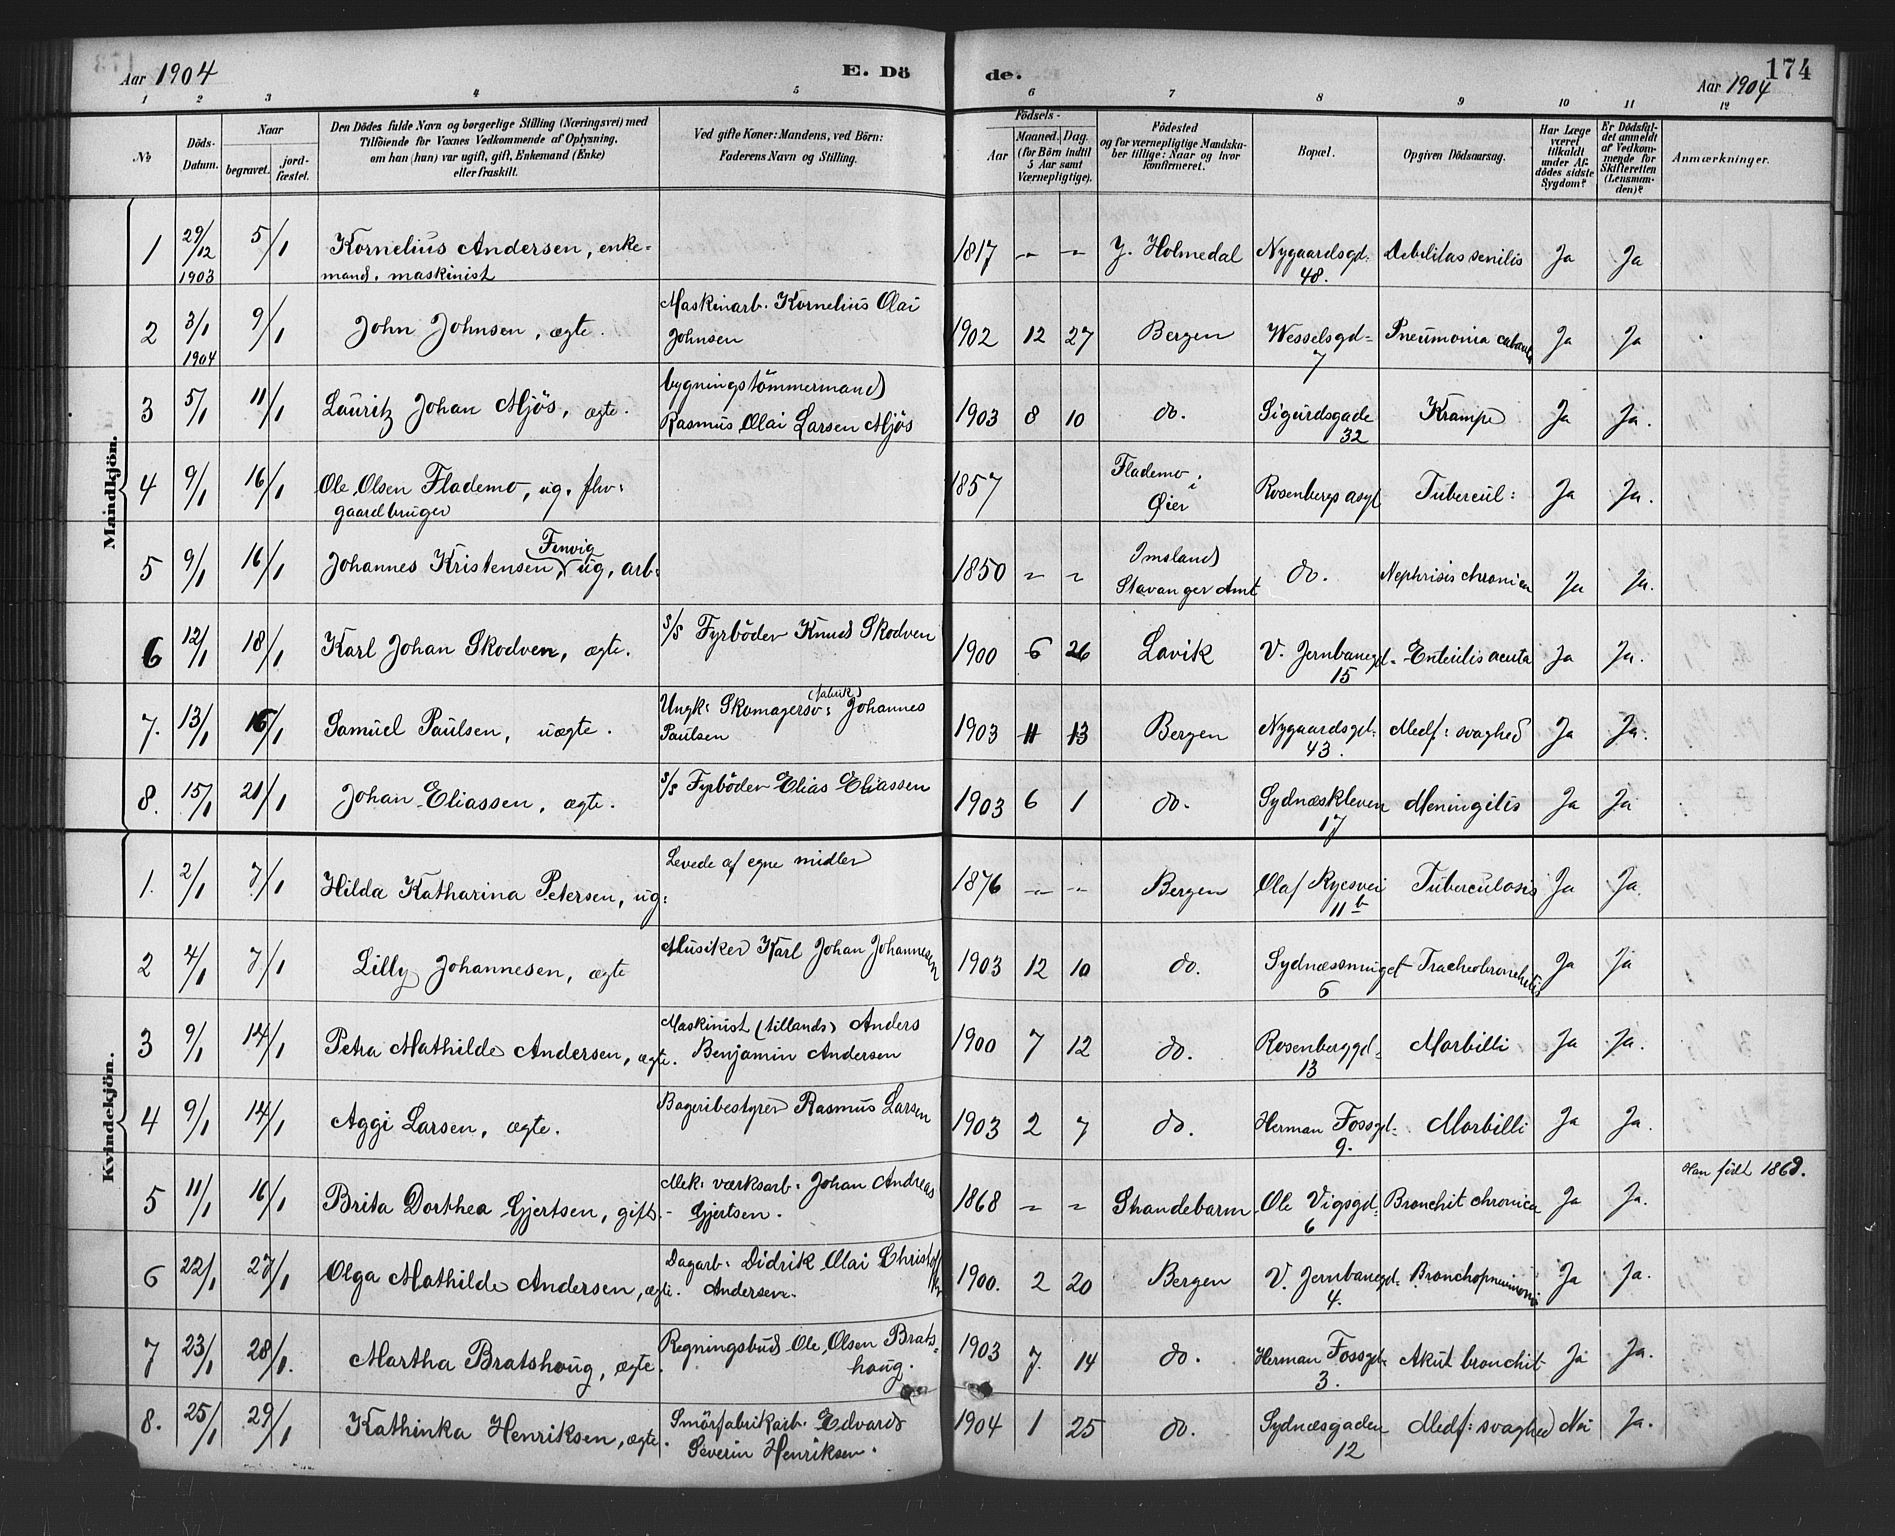 Aar 1904
E. Dö
de.
174
Aar 1904
1 2 3 4 5 6 7 8 9 10 11 12
No
Döds-Datum.
Naar
begravet.
jord-fæstet.
Den Dödes fulde Navn og borgerlige Stilling (Næringsvei) med
Tilföiende for Voxnes Vedkommende af Oplysning,
om han (hun) var ugift, gift, Enkemand (Enke)
eller fraskilt.
Ved gifte Koner: Mandens, ved Börn:
Faderens Navn og Stilling.
Födsels-
Aar
Maaned. Dag.
(for Börn indtil
5 Aar samt
Værnepligtige).
Födested
og for værnepligtige Mandska-
ber tillige: Naar og hvor
konfirmeret.
Bopæl.
Opgiven Dödsaarsag.
Har Læge
været
tilkaldt
under Af-
dödes sidste
Sygdom?
Er Dödsfal-
det anmeldt
af Vedkom-
mende for
Skifteretten
(Lensman-
den)?
Anmærkninger.
Mandkjön.
1 29/12 1903 5/1 Kornelius Andersen, enke=
mand, maskinist
1817 " " Y. Holmedal Nygaardsgd: 48. Debilitas senilis Ja Ja
2 3/1 1904 9/1 John Johnsen, ægte. Maskinarb. Kornelius Olai
Johnsen
1902 12 27 Bergen Wesselsgd= 7 Pneumonia Ja Ja
3 5/1 11/1 Lauritz Johan Mjös, ægte. bygningstömmermand
Rasmus Olai Larsen Mjös
1903 8 10 do. Sigurdsgade 32 Krampe Ja Ja.
4 9/1 16/1 Ole Olsen Flademo, ug. fhv:
gaardbruger
1857 Flademo i Øier Rosenbergs asyl Tubercul: Ja Ja.
5 9/1 16/1 Johannes Kristensen Fenvig, ug, arb:
1850 " " Imsland Stavanger Amt do. Nephrisis chronica Ja Ja.
6 12/1 18/1 Karl Johan Skodven, ægte. s/s Fyrböder Knud Skodven
1900 6 26 Lavik V. Jernbanegd. 15 Enteritis acuta Ja Ja.
7. 13/1 16/1 Samuel Paulsen, uægte. Ungk: Skomagersv: (fabrik) Johannes
Paulsen
1903 11 13 Bergen Nygaardsgd: 43. Medf: svaghed Ja Ja.
8. 15/1 21/1 Johan Eliassen, ægte. s/s Fyrböder Elias Eliassen
1903 6 1 do. Sydnæskleven 17 Meningitis Ja Ja
Kvindekjön.
1. 2/1 7/1 Hilda Katharina Petersen, ug: Levede af egne midler
1876 " " Bergen Olaf Ryesvei 11 b Tuberculosis Ja Ja.
2 4/1 7/1 Lilly Johannesen, ægte Musiker Karl Johan Johannesen
1903 12 10 do. Sydnæssmuget 6 Tracheobronchitis Ja ja
3 9/1 14/1 Petra Mathilde Andersen, ægte. Maskinist (tillands) Anders
Benjamin Andersen
1900 7 12 do. Rosenberggd= 13 Morbilli Ja Ja.
4 9/1 14/1 Aggi Larsen, ægte. Bageribestyrer Rasmus Larsen
1903 2 7 do. Herman Fossgd= 9. Morbilli Ja Ja.
5 11/1 16/1 Brita Dorthea Gjertsen, gift. Mek: værksarb: Johan Andreas
Gjertsen.
1868 " " Strandebarm Ole Vigsgd: 6 Bronchit chronica Ja Ja. Han født 1869.
6 22/1 27/1 Olga Mathilde Andersen, ægte. Dagarb: Didrik Olai Christoffer
Andersen.
1900. 2 20 Bergen V. Jernbanegd. 4. Bronchopneumoni Ja Ja.
7 23/1 28/1. Martha Bratshoug, ægte. Regningsbud Ole Olsen Brats=
houg.
1903 7. 14 do. Herman Fossgd. 3. Akut bronchit Ja Ja.
8. 25/1 29/1 Kathinka Henriksen, ægte. Smörfabrikarb. Edvard
Severin Henriksen.
1904 1 25 do. Sydnæsgaden 12 Medf: svaghed Nei Ja.